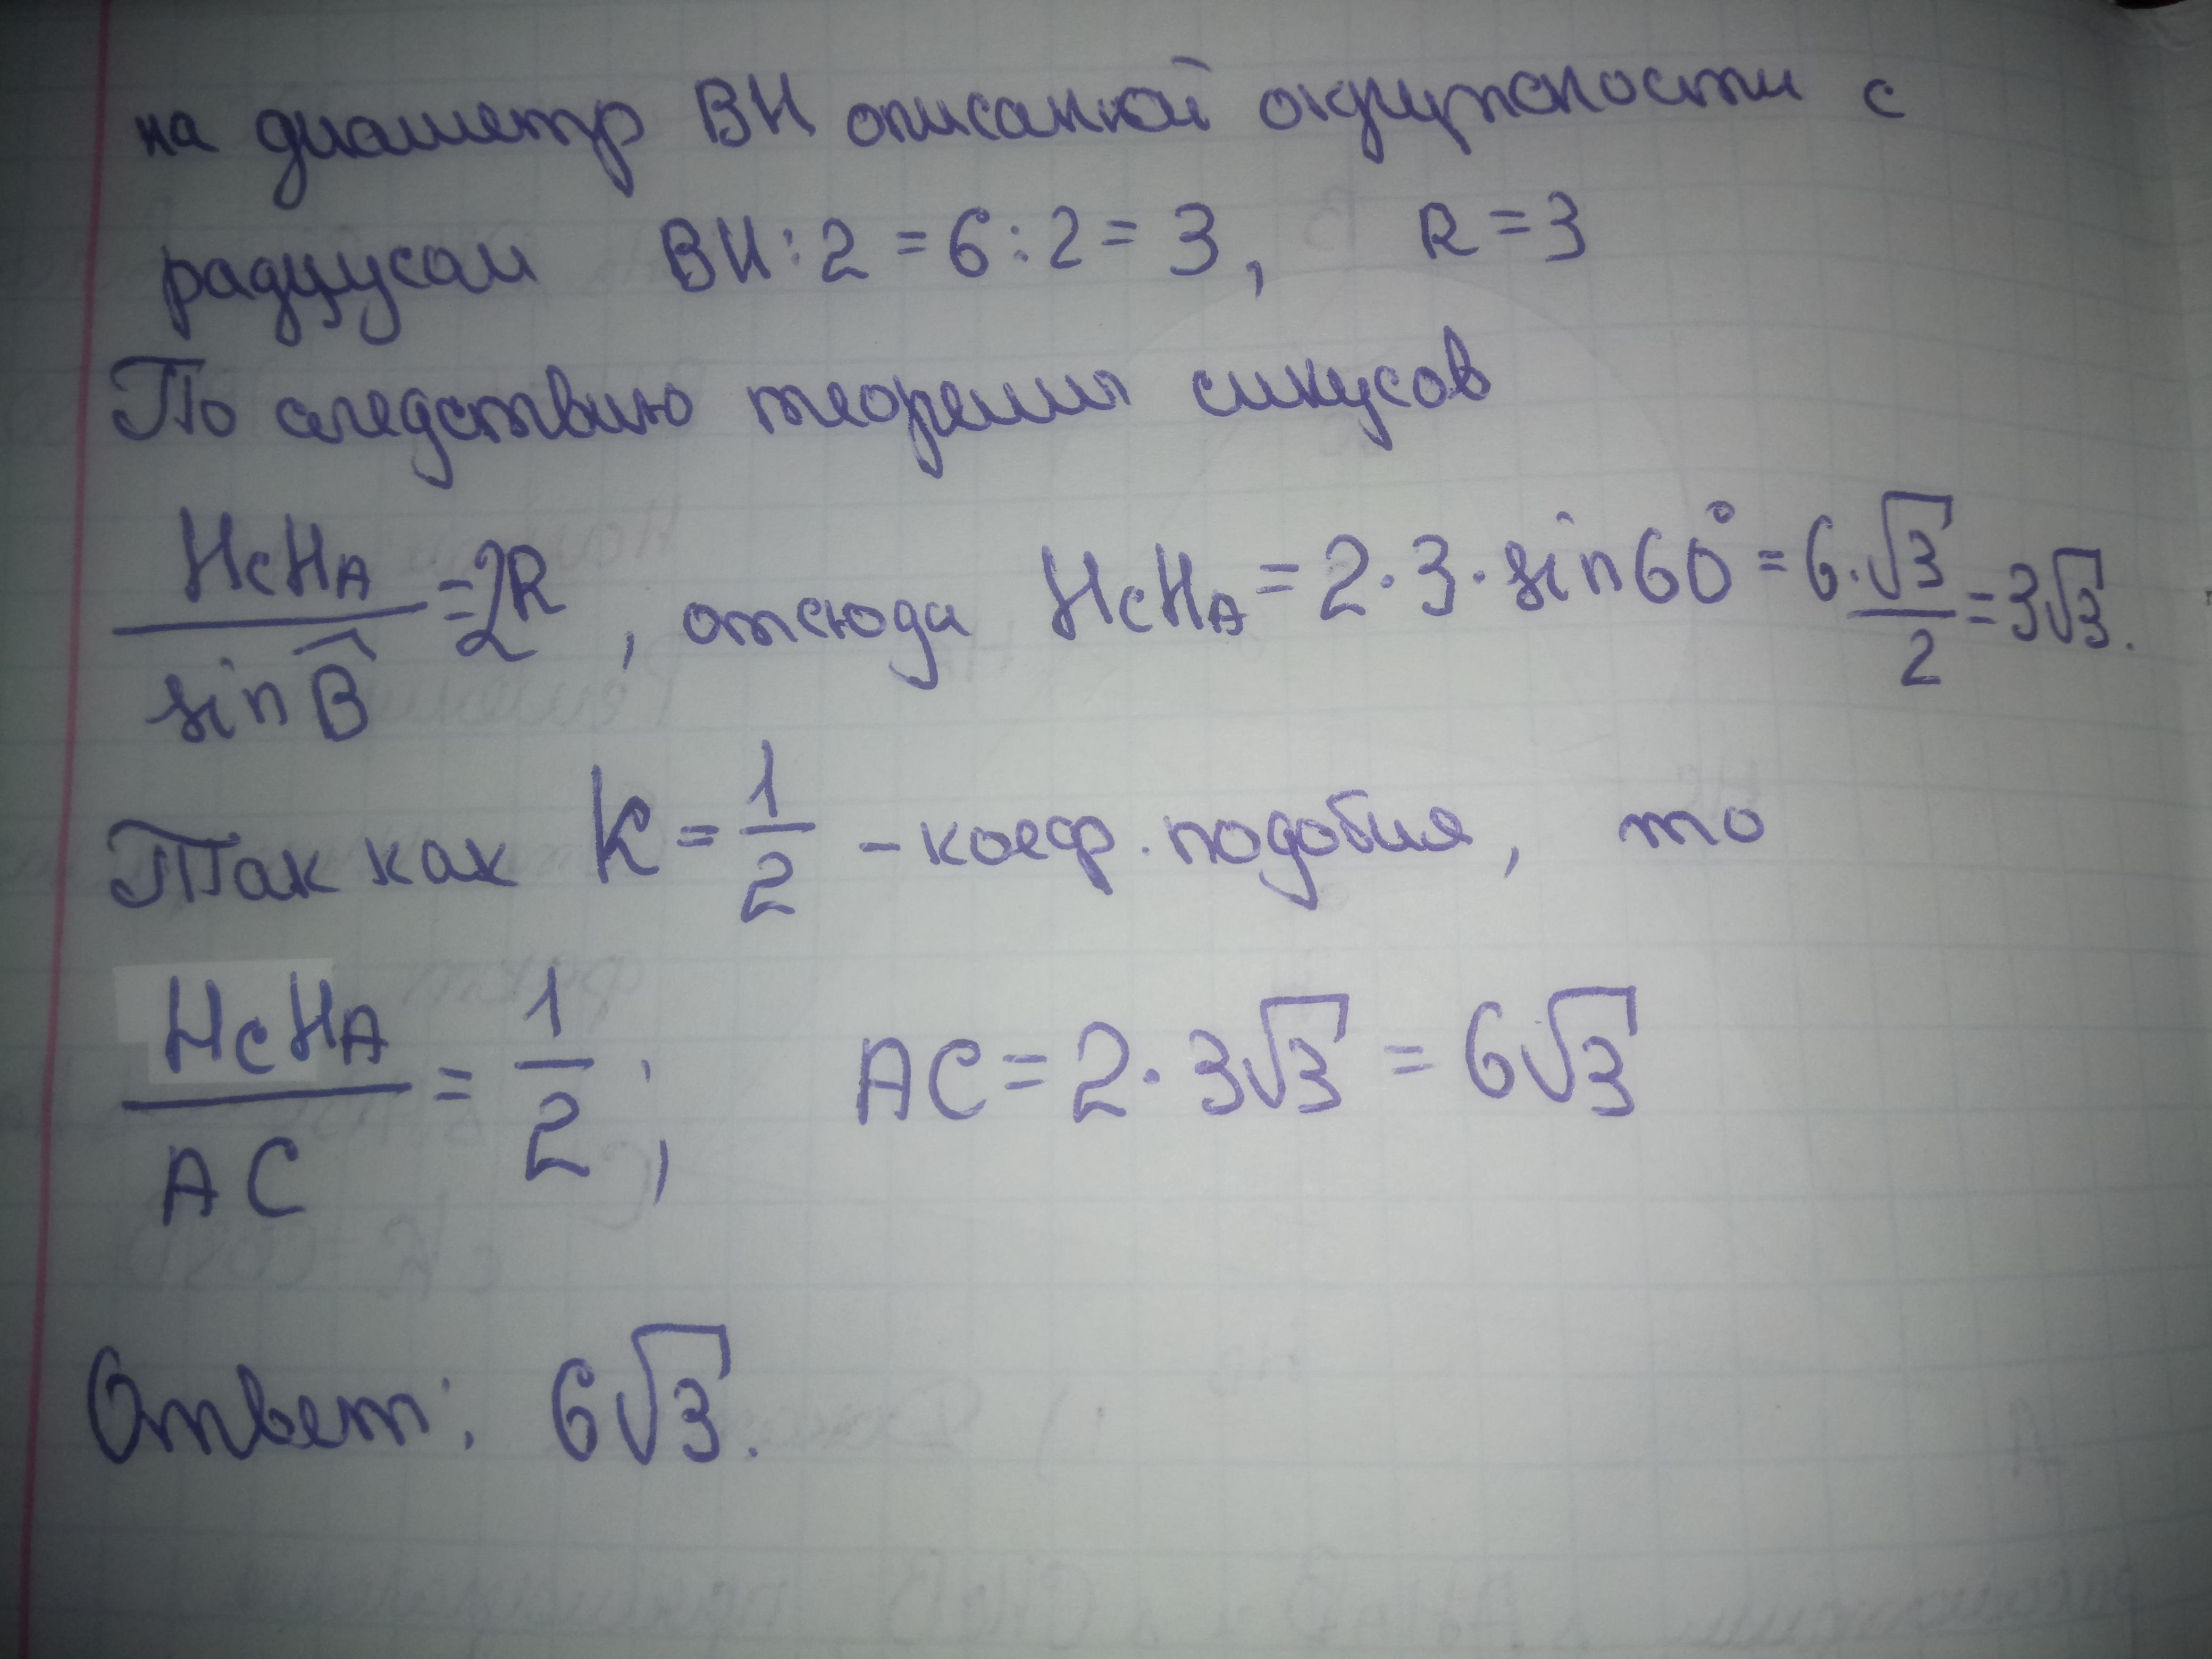 на диаметр BH описанной окружности с
радиусом BH : 2 = 6 : 2 = 3, R = 3
По следствию теоремы синусов
HcHA / sin B̂ = 2R, отсюда HcHA = 2·3·sin 60° = 6·√3/2 = 3√3.
Так как k = 1/2 – коеф. подобия, то
HcHA / AC = 1/2; AC = 2·3√3 = 6√3
Ответ: 6√3.